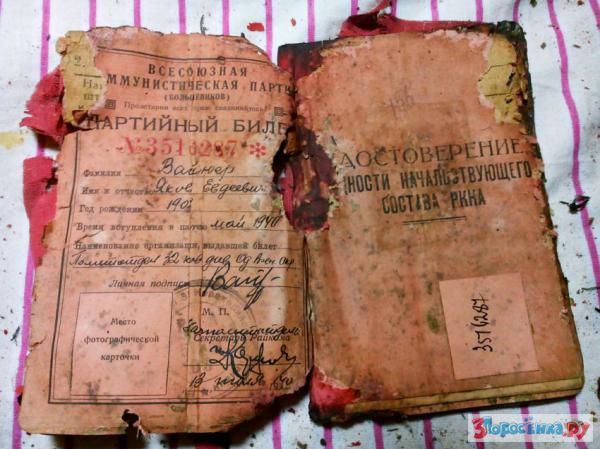 2.
ВСЕСОЮЗНАЯ
ММУНИСТИЧЕСКАЯ ПАРТИ
(БОЛЬШЕВИКОВ)
Пролетарии всех стран соединяйтесь!
ПАРТИЙНЫЙ БИЛЕ
№ 3516287 *
Фамилия Вайнер
Имя и отчество Яков Евдеевич
Год рождения 190
Время вступления в партию май 1940
Наименование организации, выдавшей билет
Политотдел 32 кав див Од Воен Окр
Личная подпись
М. П.
Место
фотографической
карточки
Секретарь Райкома
13 июля 40
ДОСТОВЕРЕНИЕ
НОСТИ НАЧАЛЬСТВУЮЩЕГО
СОСТАВА РККА
3516287
3Поросенка.РУ